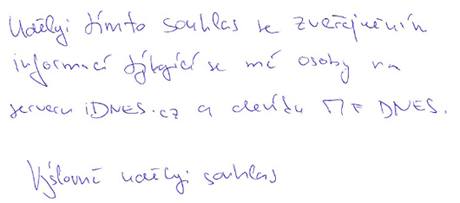 Uděluji tímto souhlas se zveřejněním
informací týkající se mé osoby na
serveru iDNES.cz a deníku MF DNES.
Výslovně uděluji souhlas